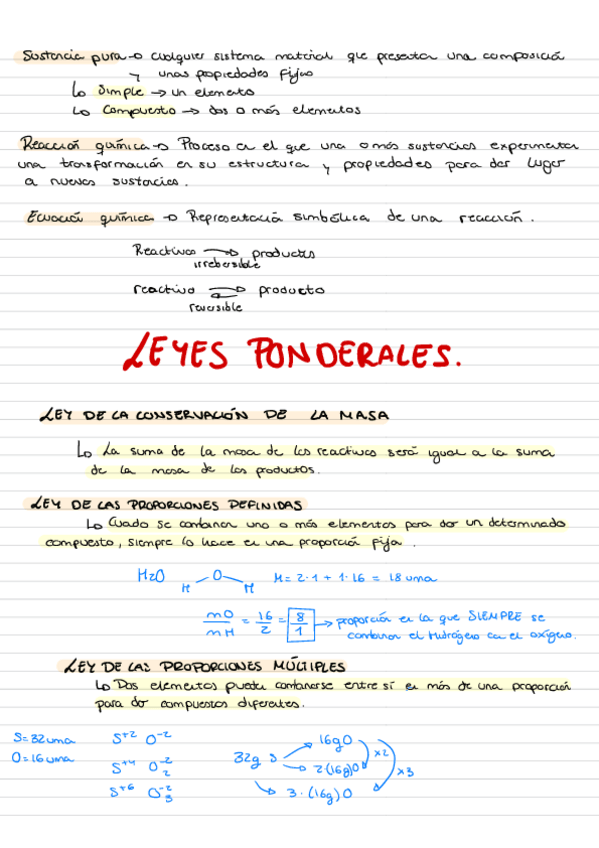 Sustancia pura → cualquier sistema material que presentan una composición
y unas propiedades fijas
↳ Simple → un elemento
↳ Compuesto → dos o más elementos
Reacción química → Proceso en el que una o más sustancias experimentan
una transformación en su estructura y propiedades para dar lugar
a nuevas sustancias.
Ecuación química → Representación simbólica de una reacción.
Reactivos → productos
irrebersible
reactivo ⇌ producto
reversible
LEYES PONDERALES.
LEY DE LA CONSERVACIÓN DE LA MASA
↳ La suma de la masa de los reactivos será igual a la suma
de la masa de los productos.
LEY DE LAS PROPORCIONES DEFINIDAS
↳ Cuado se combinan uno o más elementos para dar un determinado
compuesto, siempre lo hace en una proporción fija.
H2O H O H M = 2·1 + 1·16 = 18 uma
mO/mH = 16/2 = 8/1 → proporción en la que SIEMPRE se
combinan el hidrógeno con el oxígeno.
LEY DE LAS PROPORCIONES MÚLTIPLES
↳ Dos elementos puede combinarse entre sí en más de una proporción
para dar compuestos diferentes.
S = 32 uma S+2 O-2
O = 16 uma S+4 O-2 2
S+6 O-2 3
32g S → 16g O
→ 2·(16g)O x2
→ 3·(16g)O x3